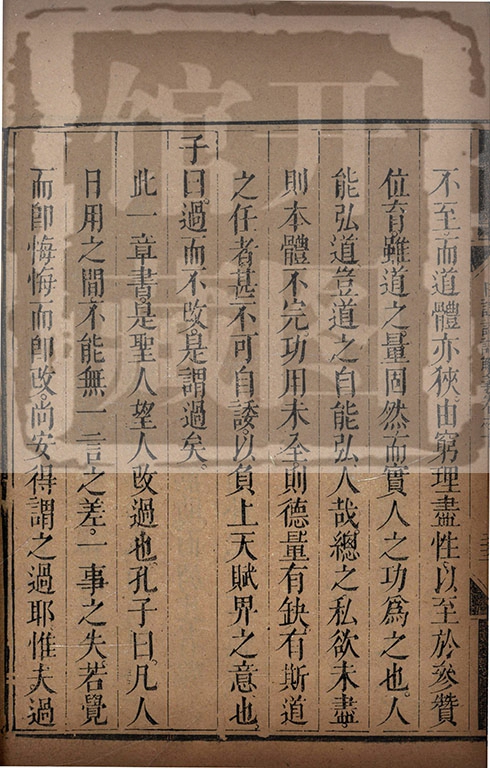 不至而道體亦狹由窮理盡性以至於參贊
位育雖道之量固然而實人之功爲之也人
能弘道豈道之自能弘人哉總之私欲未盡
則本體不完功用未全則德量有缺有斯道
之任者甚不可自諉以負上天賦畀之意也
子曰過而不改是謂過矣
此一章書是聖人望人改過也孔子曰凡人
日用之間不能無一言之差一事之失若覺
而卽悔悔而卽改尚安得謂之過耶惟夫過